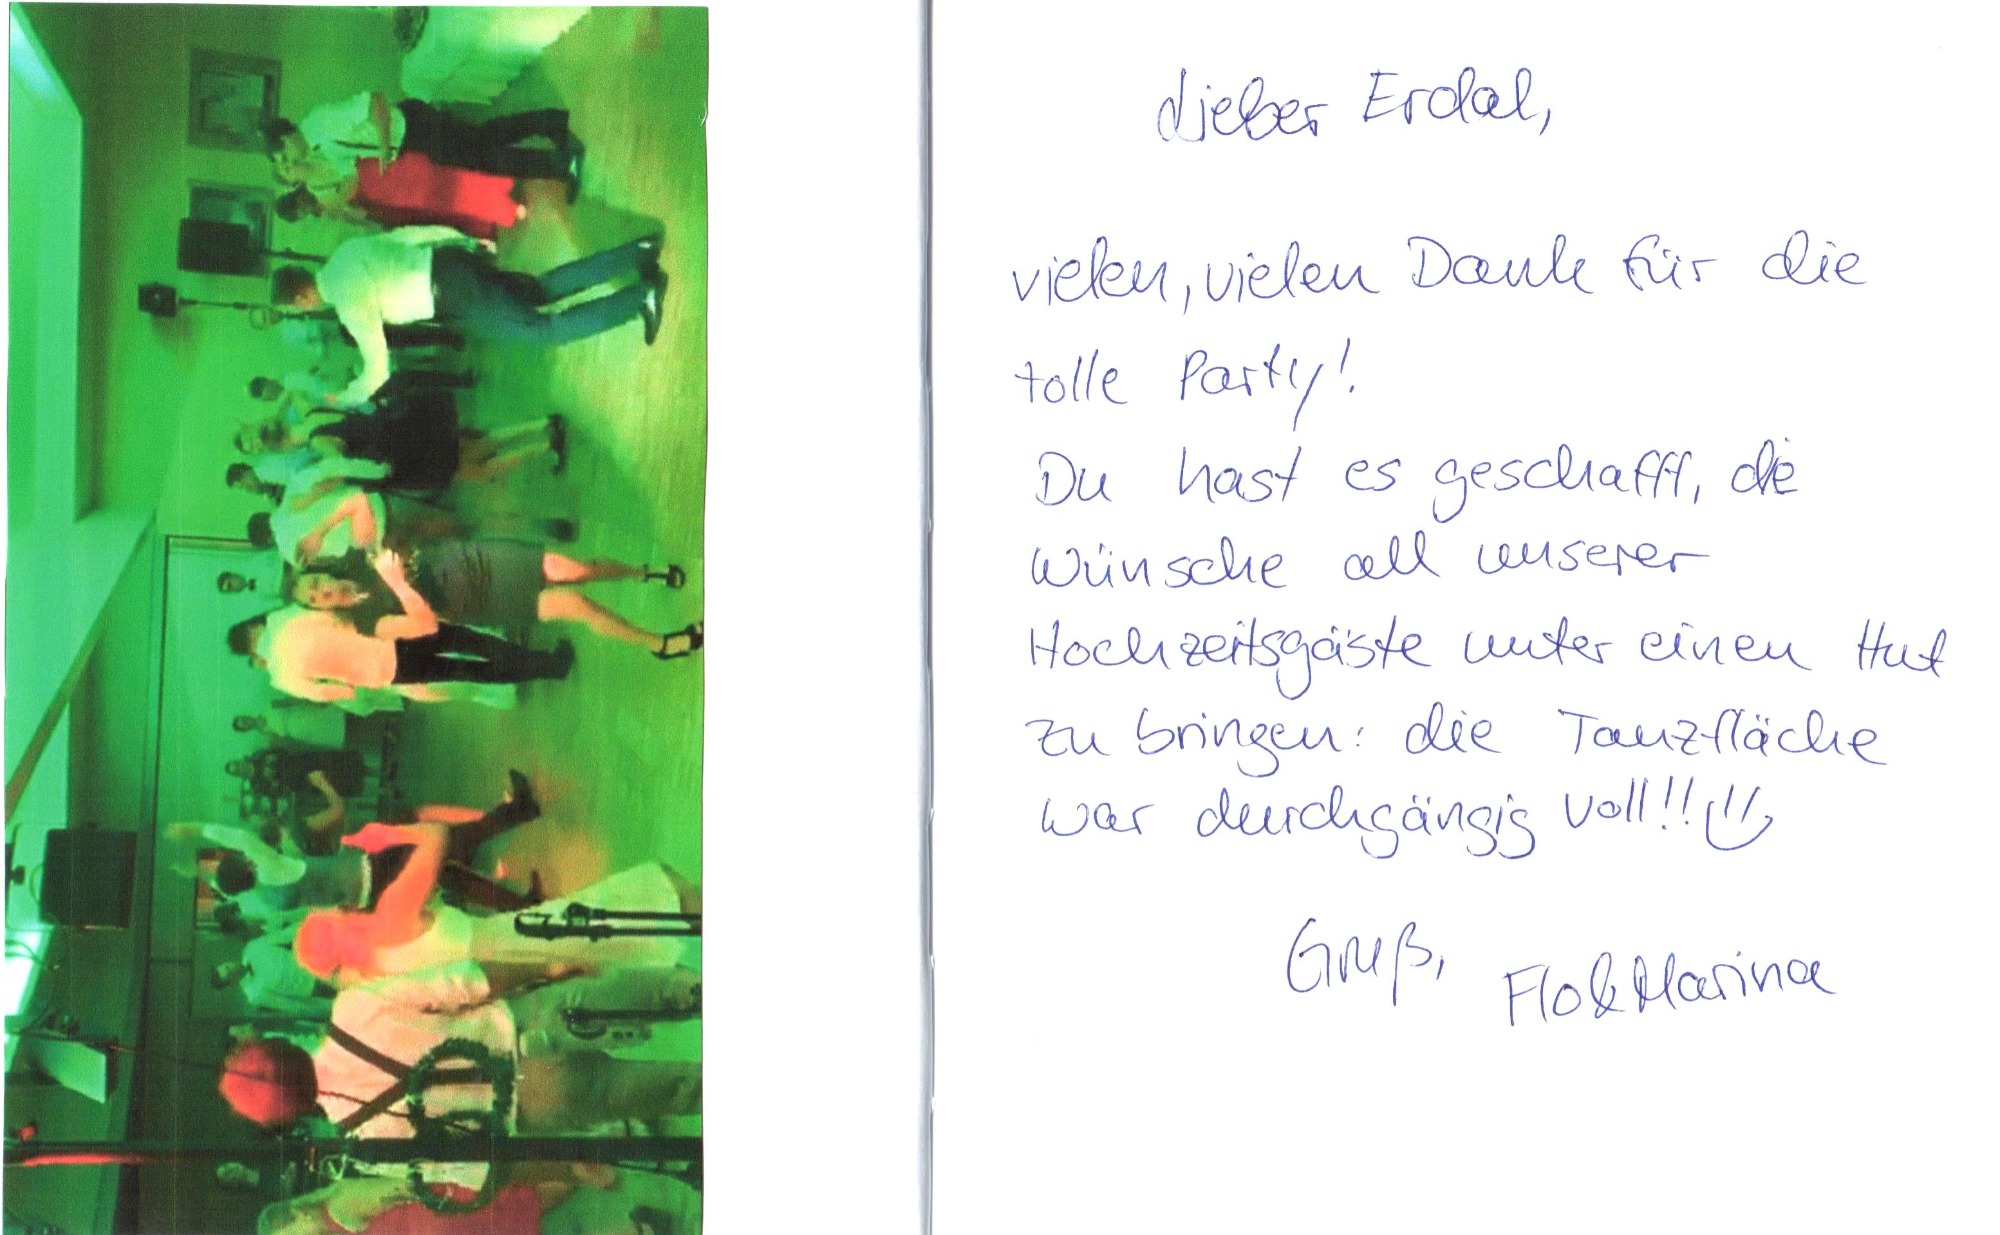 Lieber Erdal,
vielen, vielen Dank für die
tolle Party!
Du hast es geschafft, die
Wünsche all unserer
Hochzeitsgäste unter einen Hut
zu bringen: die Tanzfläche
war durchgängig voll!!
Gruß, Flo & Marina